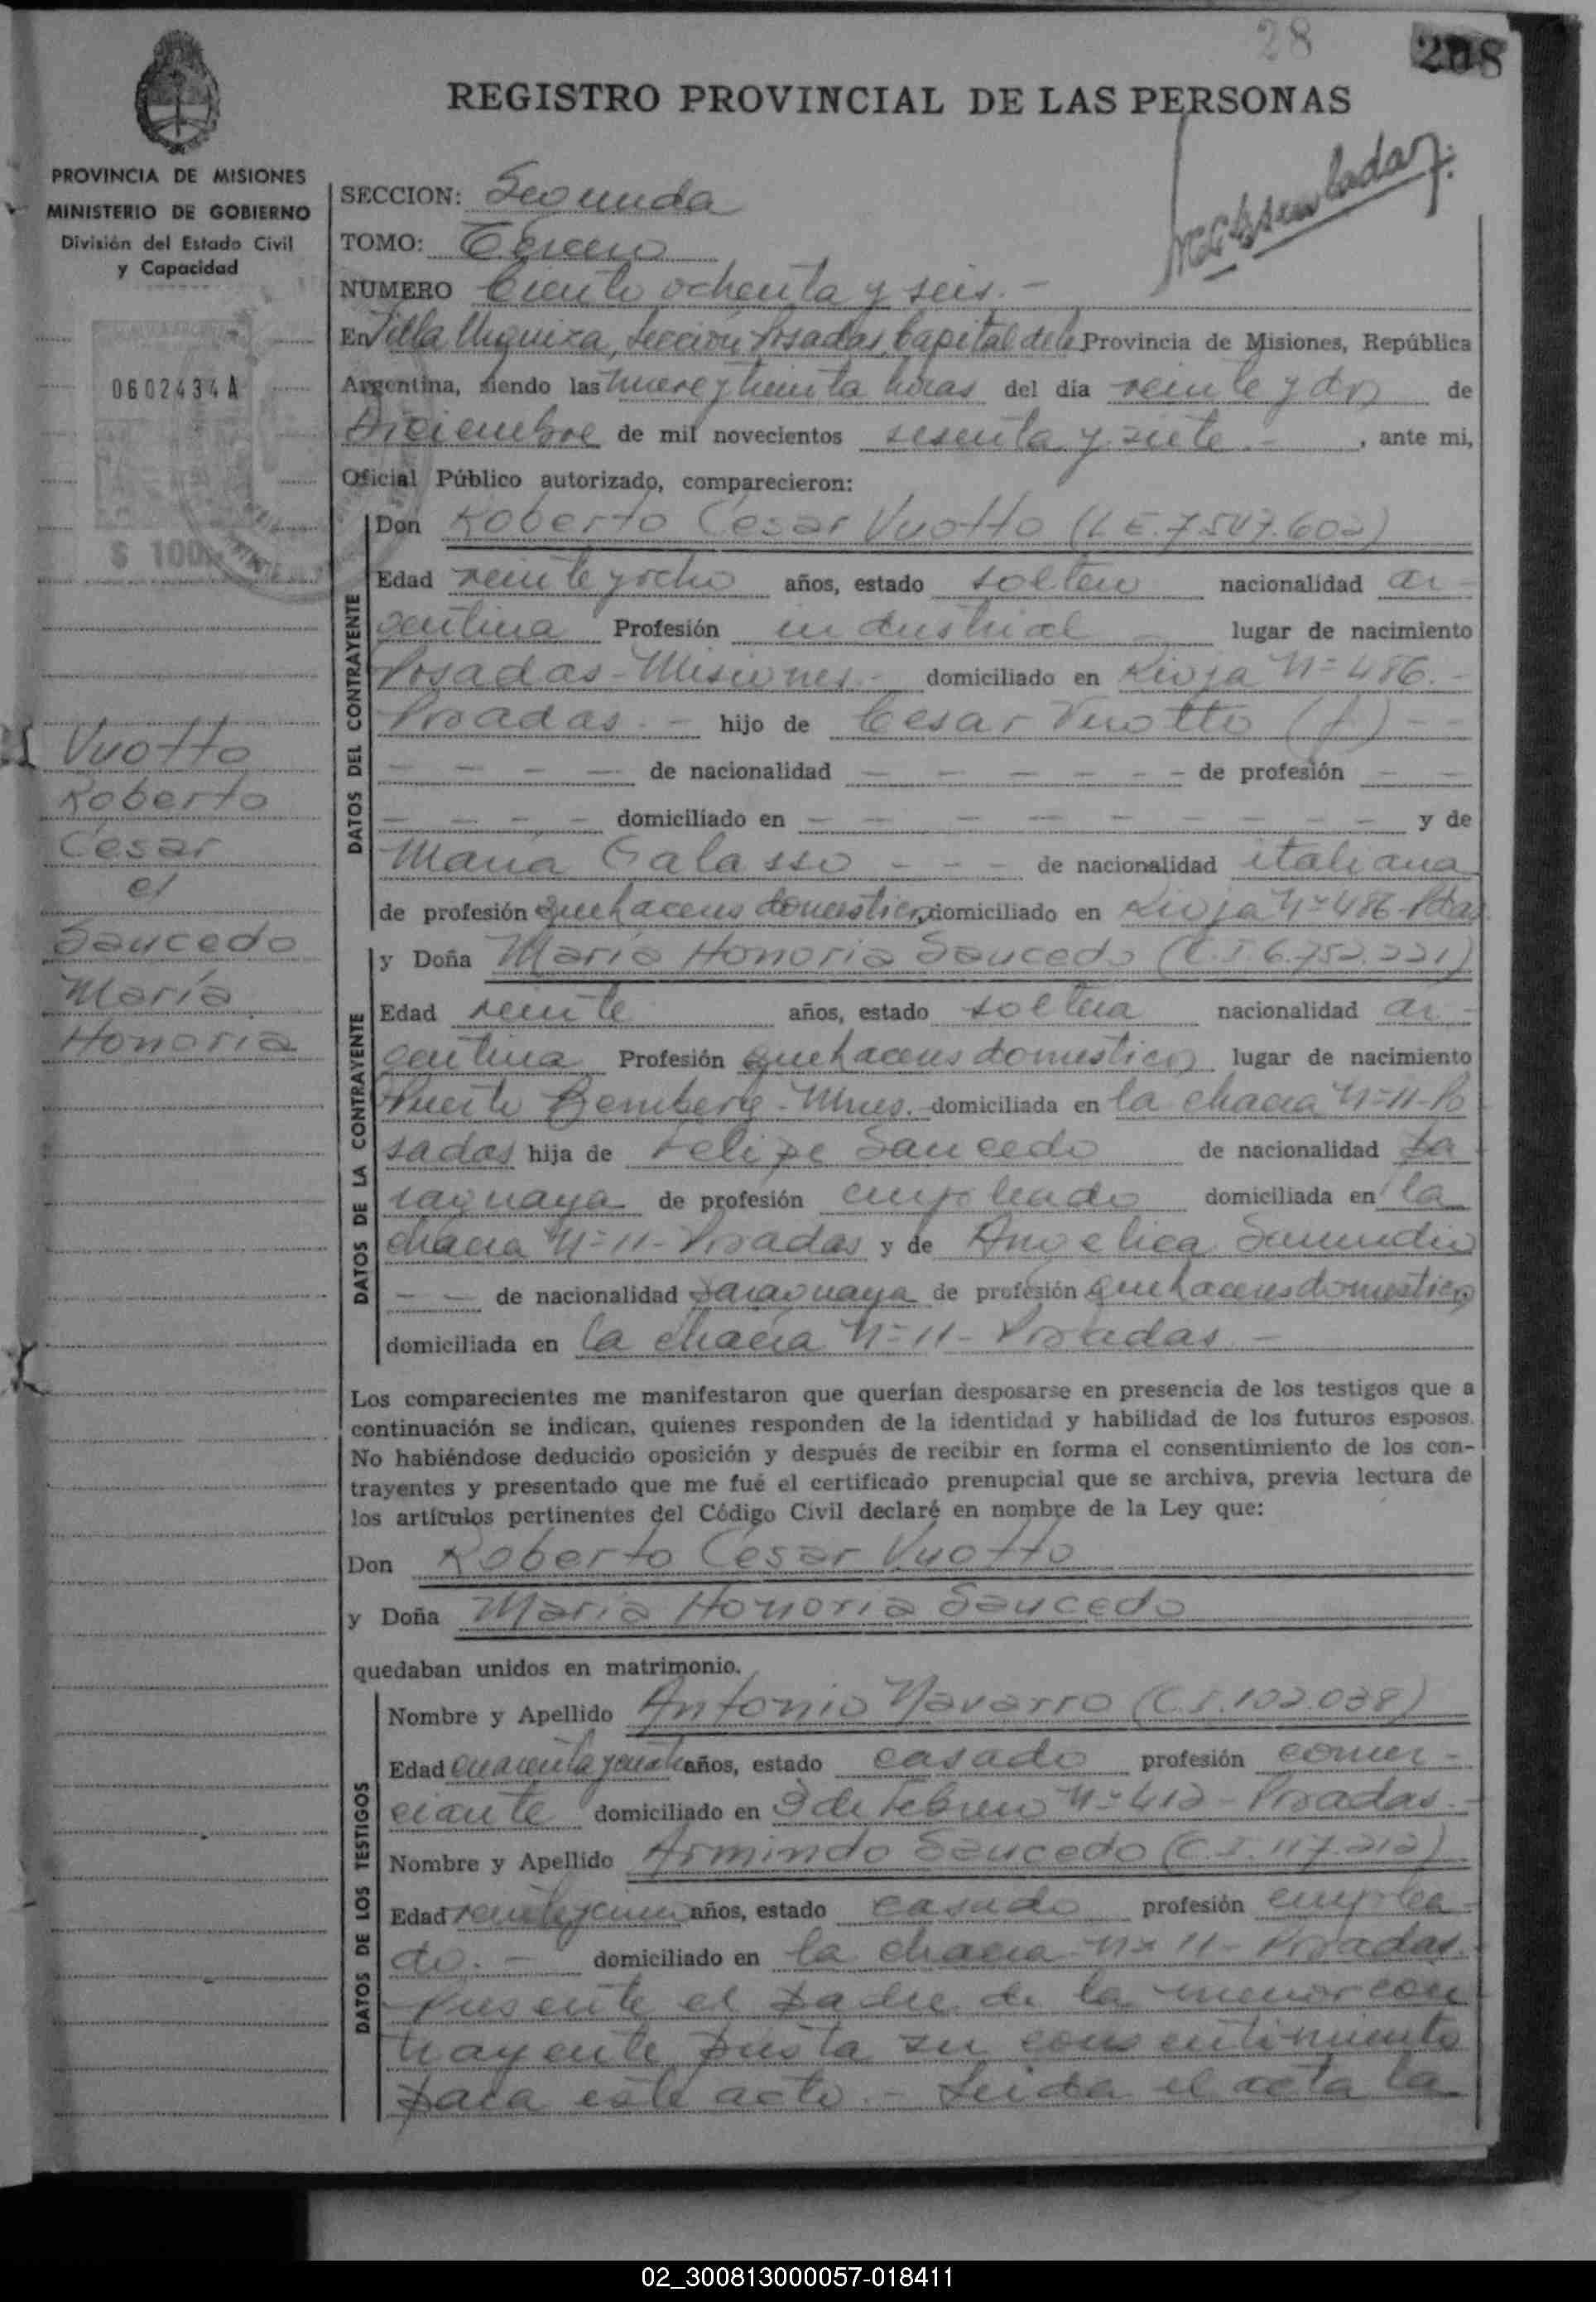 28
208
REGISTRO PROVINCIAL DE LAS PERSONAS
PROVINCIA DE MISIONES
MINISTERIO DE GOBIERNO
División del Estado Civil
y Capacidad
0602434A
$ 100
SECCION: Segunda
TOMO: Tercero
NUMERO Ciento ochenta y seis.-
En Villa Urquiza, Sección Posadas, Capital de la Provincia de Misiones, República
Argentina, siendo las nueve y treinta horas del día veinte y dos de
Diciembre de mil novecientos sesenta y siete.-, ante mi,
Oficial Público autorizado, comparecieron:
DATOS DEL CONTRAYENTE
Don Roberto César Vuotto (L.E. 7.547.602)
Edad veinte y ocho años, estado soltero nacionalidad ar-
gentina Profesión industrial - lugar de nacimiento
Posadas-Misiones.- domiciliado en Rioja Nº 486.-
Posadas.- hijo de César Vuotto (f) - -
- - - - de nacionalidad - - - - - - de profesión - -
- - - - domiciliado en - - - - - - - - - y de
María Galasso - - - de nacionalidad italiana
de profesión quehaceres domésticos, domiciliado en Rioja Nº 486-Pdas
Vuotto
Roberto
César
c/
Saucedo
María
Honoria
DATOS DE LA CONTRAYENTE
y Doña María Honoria Saucedo (C.I. 6.752.221)
Edad veinte años, estado soltera nacionalidad ar-
gentina Profesión quehaceres domésticos lugar de nacimiento
Puerto Bemberg-Mnes.- domiciliada en la chacra Nº 11-Po
sadas hija de Felipe Saucedo de nacionalidad pa
raguaya de profesión empleado domiciliada en la
chacra Nº 11-Posadas y de Angélica Samudio
- - de nacionalidad paraguaya de profesión quehaceres domésticos
domiciliada en la chacra Nº 11-Posadas.-
Los comparecientes me manifestaron que querían desposarse en presencia de los testigos que a
continuación se indican, quienes responden de la identidad y habilidad de los futuros esposos.
No habiéndose deducido oposición y después de recibir en forma el consentimiento de los con-
trayentes y presentado que me fué el certificado prenupcial que se archiva, previa lectura de
los artículos pertinentes del Código Civil declaré en nombre de la Ley que:
Don Roberto César Vuotto
y Doña María Honoria Saucedo
quedaban unidos en matrimonio.
DATOS DE LOS TESTIGOS
Nombre y Apellido Antonio Navarro (C.I. 102.038)
Edad cuarenta y años, estado casado profesión comer-
ciante domiciliado en 3 de Febrero Nº 412-Posadas.-
Nombre y Apellido Armindo Saucedo (C.I. 117.212)
Edad veinte y cinco años, estado casado profesión emplea-
do.- domiciliado en la chacra Nº 11-Posadas.
Presente el padre de la menor con
trayente presta su consentimiento
para este acto.- Leída el acta la
02_300813000057-018411